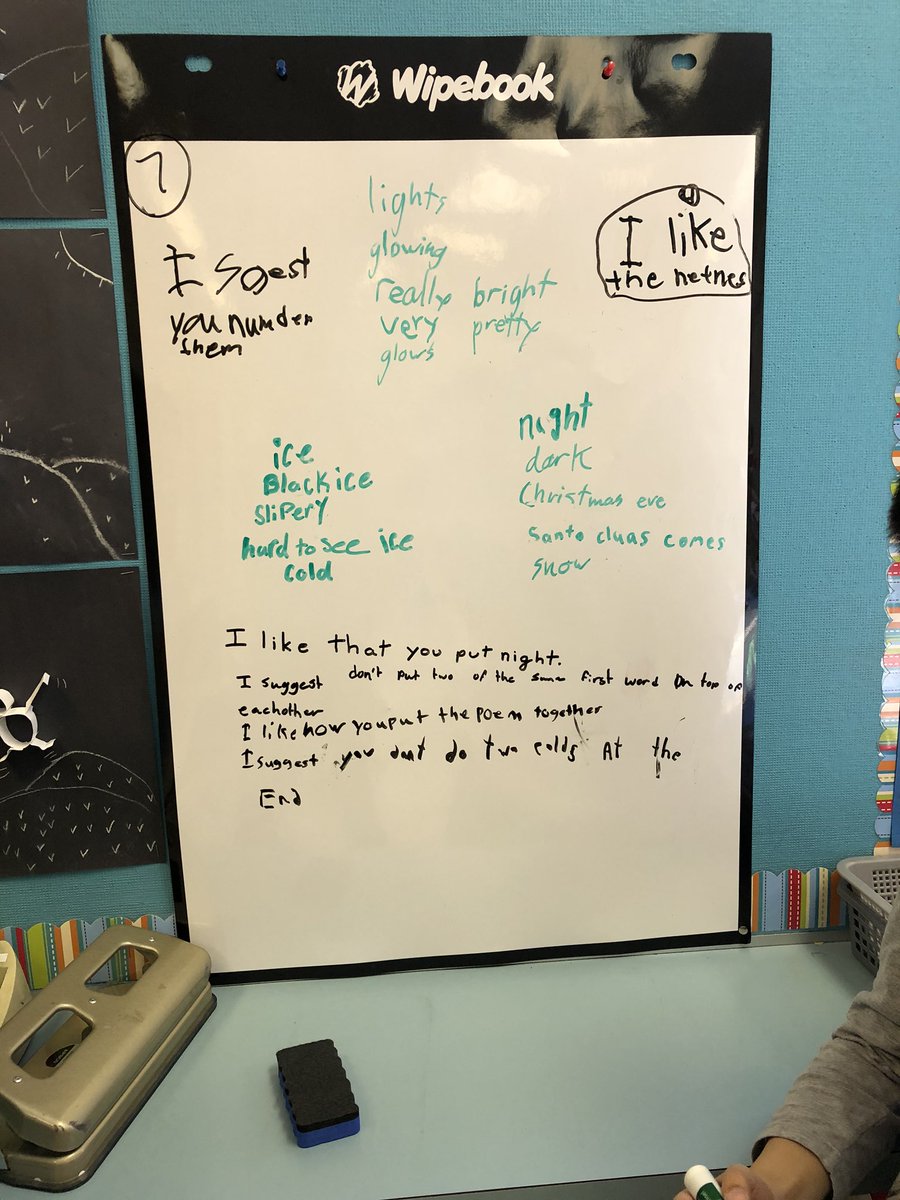 Wipebook
7
I Sgest
you numder
them
lights
glowing
really bright
very pretty
glows
I like
the netnes
ice
Black ice
SliPerY
hard to see ice
cold
night
dark
Christmas eve
Santa cluas comes
snow
I like that you put night.
I suggest don't put two of the same first word on top of
eachother
I like how you put the poem together
I suggest you dont do two colds At the
End